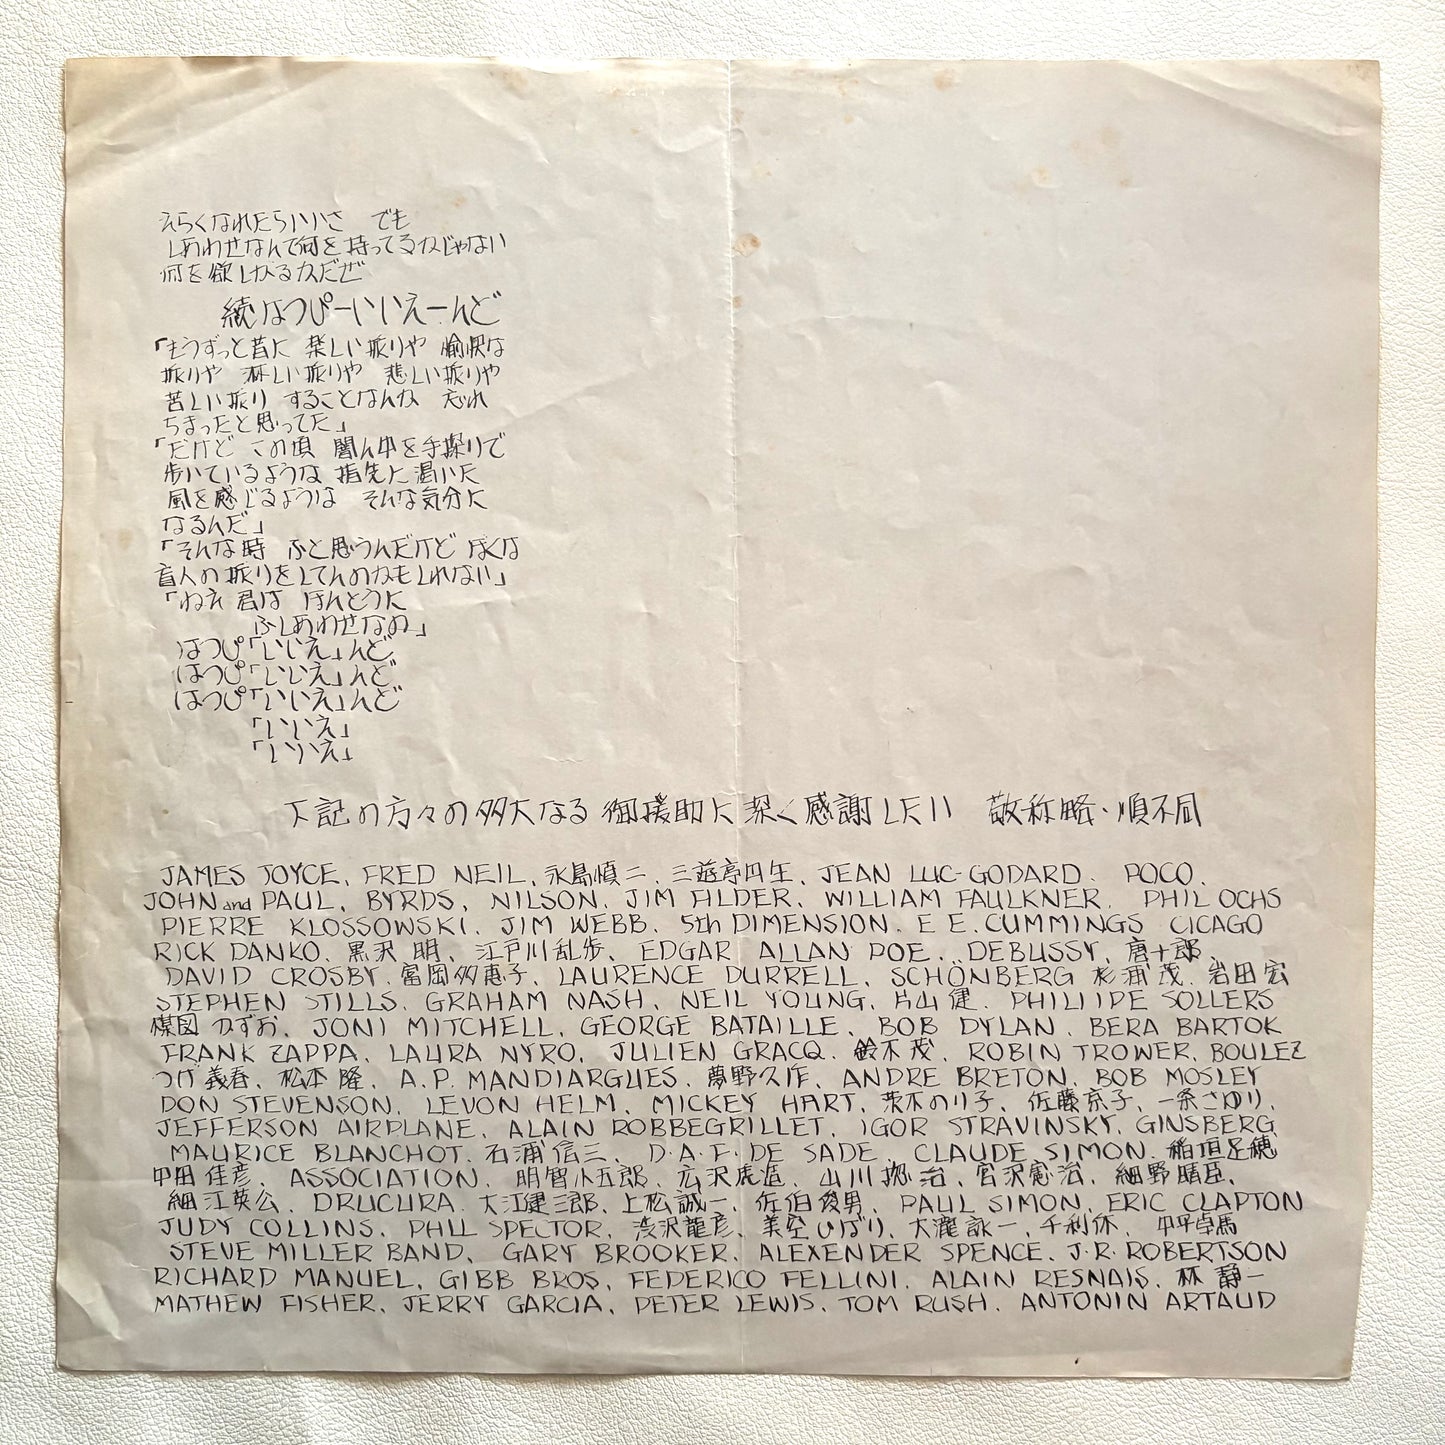 えらくなれたらいいさ　でも
しあわせなんて何を持ってるかじゃない
何を欲しがるかだぜ
続はっぴーいいえーんど
「もうずっと昔に 楽しい振りや 愉快な
振りや 淋しい振りや 悲しい振りや
苦しい振り することなんか 忘れ
ちまったと思ってた」
「だけど この頃 闇ん中を手探りで
歩いているような 指先に渇いた
風を感じるような そんな気分に
なるんだ」
「そんな時 ふと思うんだけど ぼくは
盲人の振りをしてんのかもしれない」
「ねえ 君は ほんとうに
ふしあわせなの」
はっぴ「いいえ」んど
はっぴ「いいえ」んど
はっぴ「いいえ」んど
「いいえ」
「いいえ」
下記の方々の多大なる御援助に深く感謝したい 敬称略・順不同
JAMES JOYCE, FRED NEIL, 永島慎二, 三遊亭円生, JEAN LUC-GODARD. POCO,
JOHN and PAUL, BYRDS, NILSON, JIM FILDER, WILLIAM FAULKNER, PHIL OCHS
PIERRE KLOSSOWSKI, JIM WEBB, 5th DIMENSION, E E. CUMMINGS CICAGO
RICK DANKO, 黒沢 明, 江戸川乱歩, EDGAR ALLAN POE, DEBUSSY, 唐十郎,
DAVID CROSBY, 富岡多恵子, LAURENCE DURRELL, SCHÖNBERG 杉浦茂, 岩田宏
STEPHEN STILLS, GRAHAM NASH, NEIL YOUNG, 片山 健, PHILIIPE SOLLERS
楳図かずお, JONI MITCHELL, GEORGE BATAILLE, BOB DYLAN, BERA BARTOK
FRANK ZAPPA, LAURA NYRO, JULIEN GRACQ, 鈴木茂, ROBIN TROWER, BOULEZ
つげ義春, 松本 隆, A.P. MANDIARGUES, 夢野久作, ANDRE BRETON, BOB MOSLEY
DON STEVENSON, LEVON HELM, MICKEY HART, 茨木のり子, 佐藤京子, 一条さゆり,
JEFFERSON AIRPLANE, ALAIN ROBBEGRILLET, IGOR STRAVINSKY, GINSBERG
MAURICE BLANCHOT, 石浦信三, D.A.F. DE SADE, CLAUDE SIMON, 稲垣足穂
中田佳彦, ASSOCIATION, 明智小五郎, 広沢虎造, 山川 治, 宮沢憲治, 細野晴臣,
細江英公, DRUCURA, 大江健三郎, 上松誠一, 佐伯俊男, PAUL SIMON, ERIC CLAPTON
JUDY COLLINS, PHIL SPECTOR, 渋沢龍彦, 美空ひばり, 大瀧詠一, 千利休, 中平卓馬
STEVE MILLER BAND, GARY BROOKER, ALEXENDER SPENCE, J.R. ROBERTSON
RICHARD MANUEL, GIBB BROS, FEDERICO FELLINI, ALAIN RESNAIS, 林 静一
MATHEW FISHER, JERRY GARCIA, PETER LEWIS, TOM RUSH, ANTONIN ARTAUD